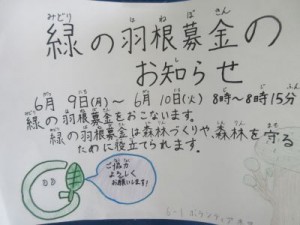 緑の羽根募金の
お知らせ
6月 9日(月)〜 6月 10日(火) 8時〜8時15分
緑の羽根募金をおこないます。
緑の羽根募金は森林づくりや、森林を守る
ために役立てられます。
ご協力
よろしく
お願いします!